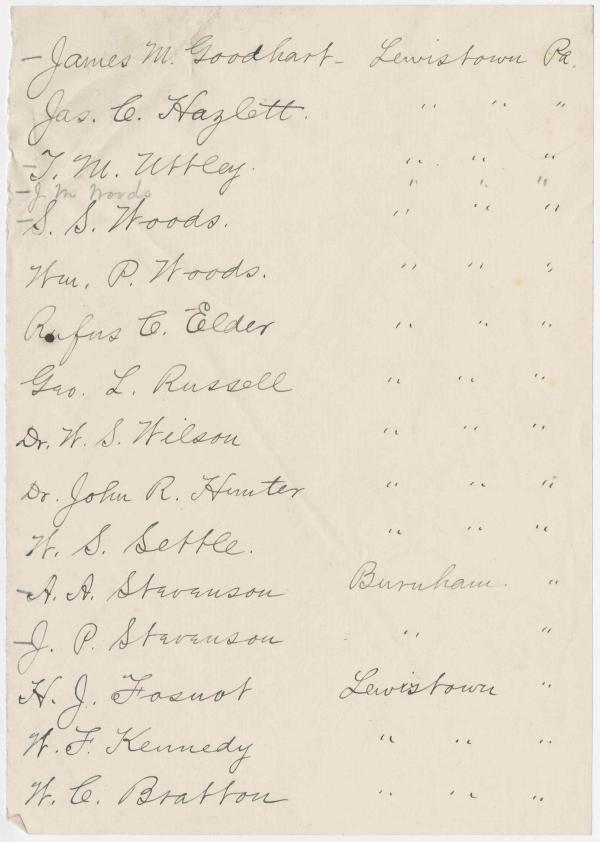 - James M. Goodhart - Lewistown Pa.
Jas. C. Hazlett. " " "
- T. M. Uttley. " " "
- J. M. Woods " " "
- S. S. Woods. " " "
Wm. P. Woods. " " "
Rufus C. Elder " " "
Geo. L. Russell " " "
Dr. W. S. Wilson " " "
Dr. John R. Hunter " " "
W. S. Settle. " " "
- A. A. Stevenson Burnham. "
- J. P. Stevenson " "
H. J. Fosnot Lewistown "
W. F. Kennedy " " "
W. C. Bratton " " "